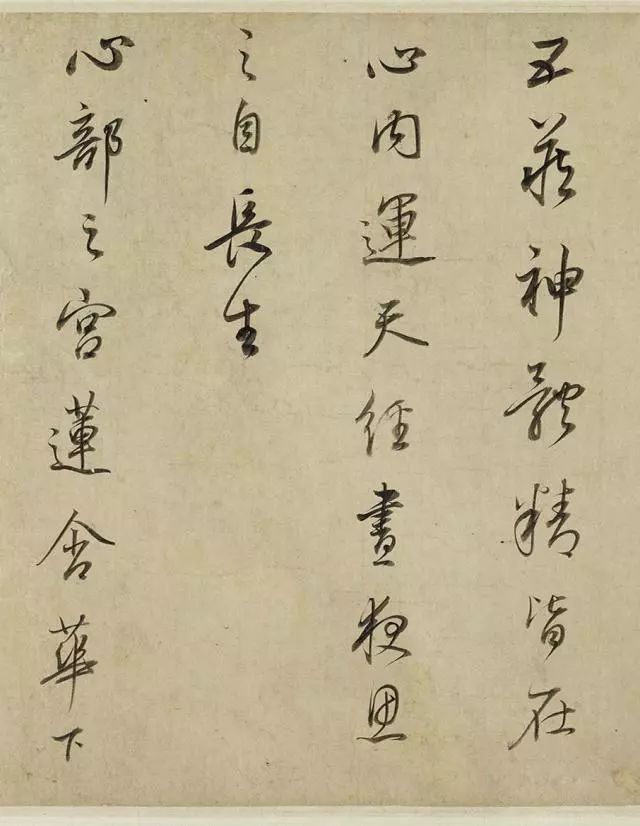 五藏神體精皆在
心内運天經晝夜思
之自長生
心部之宮蓮含華下